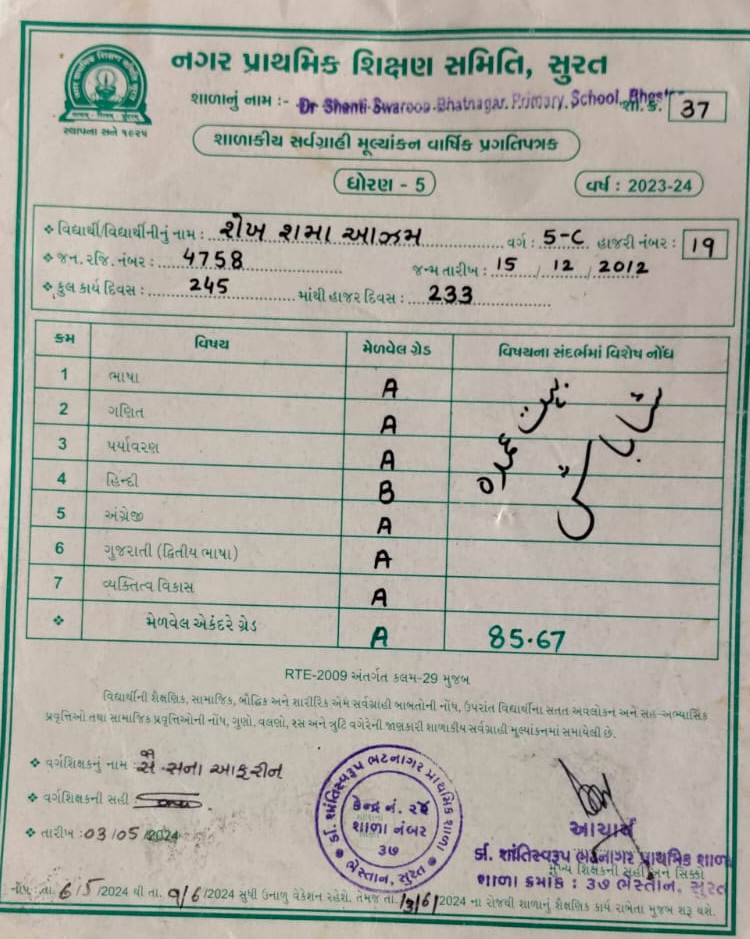 નગર પ્રાથમિક શિક્ષણ સમિતિ, સુરત
સ્થાપના સને ૧૯૨૫
શાળાનું નામ :- Dr Shanti Swaroop Bhatnagar Primary School, શા. ક્ર. 37
શાળાકીય સર્વગ્રાહી મૂલ્યાંકન વાર્ષિક પ્રગતિપત્રક
ધોરણ - 5 વર્ષ : 2023-24
❖ વિદ્યાર્થી/વિદ્યાર્થીનીનું નામ : શેખ શમા આઝમ વર્ગ : 5-C હાજરી નંબર : 19
❖ જન. રજિ. નંબર : 4758 જન્મ તારીખ : 15 / 12 / 2012
❖ કુલ કાર્ય દિવસ : 245 માંથી હાજર દિવસ : 233
ક્રમ વિષય મેળવેલ ગ્રેડ વિષયના સંદર્ભમાં વિશેષ નોંધ
1 ભાષા A
2 ગણિત A
3 પર્યાવરણ A
4 હિન્દી B
5 અંગ્રેજી A
6 ગુજરાતી (દ્વિતીય ભાષા) A
7 વ્યક્તિત્વ વિકાસ A
❖ મેળવેલ એકંદરે ગ્રેડ A 85.67
RTE-2009 અંતર્ગત કલમ-29 મુજબ
વિદ્યાર્થીની શૈક્ષણિક, સામાજિક, બૌદ્ધિક અને શારીરિક એમ સર્વગ્રાહી બાબતોની નોંધ, ઉપરાંત વિદ્યાર્થીના સતત અવલોકન અને સહ-અભ્યાસિક
પ્રવૃત્તિઓ તથા સામાજિક પ્રવૃત્તિઓની નોંધ, ગુણો, વલણો, રસ અને ત્રુટિ વગેરેની જાણકારી શાળાકીય સર્વગ્રાહી મૂલ્યાંકનમાં સમાયેલી છે.
❖ વર્ગશિક્ષકનું નામ સૈ સના આફરીન
❖ વર્ગશિક્ષકની સહી
❖ તારીખ : 03/05/2024
ડૉ. શાંતિસ્વરૂપ ભટનાગર પ્રાથમિક શાળા
કેન્દ્ર નં. ૨૪
શાળા નંબર
૩૭
ભેસ્તાન, સુરત
આચાર્ય
ડૉ. શાંતિસ્વરૂપ ભટનાગર પ્રાથમિક શાળા
મુખ્ય શિક્ષકની સહી અને સિક્કો
શાળા ક્રમાંક : ૩૭ ભેસ્તાન, સુરત
નોંધ : તા. 6/5/2024 થી તા. 9/6/2024 સુધી ઉનાળુ વેકેશન રહેશે. તેમજ તા. /6/2024 ના રોજથી શાળાનું શૈક્ષણિક કાર્ય રાબેતા મુજબ શરૂ થશે.